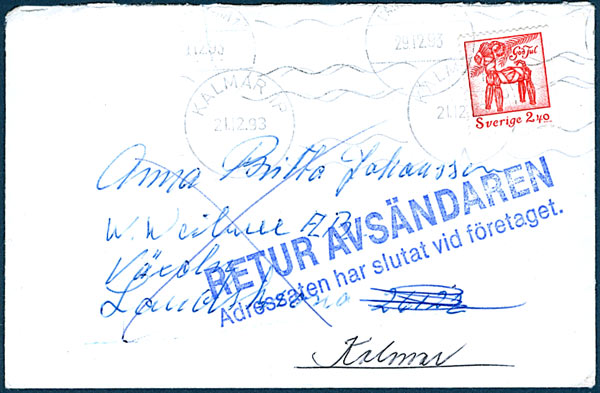 29.12.93
God Jul
KALMAR
21.12.93
21.12
Sverige 2.40
Anna Britta Johansson
W. Weibull AB.
RETUR AVSÄNDAREN
Adressaten har slutat vid företaget.
Landskrona
Kalmar